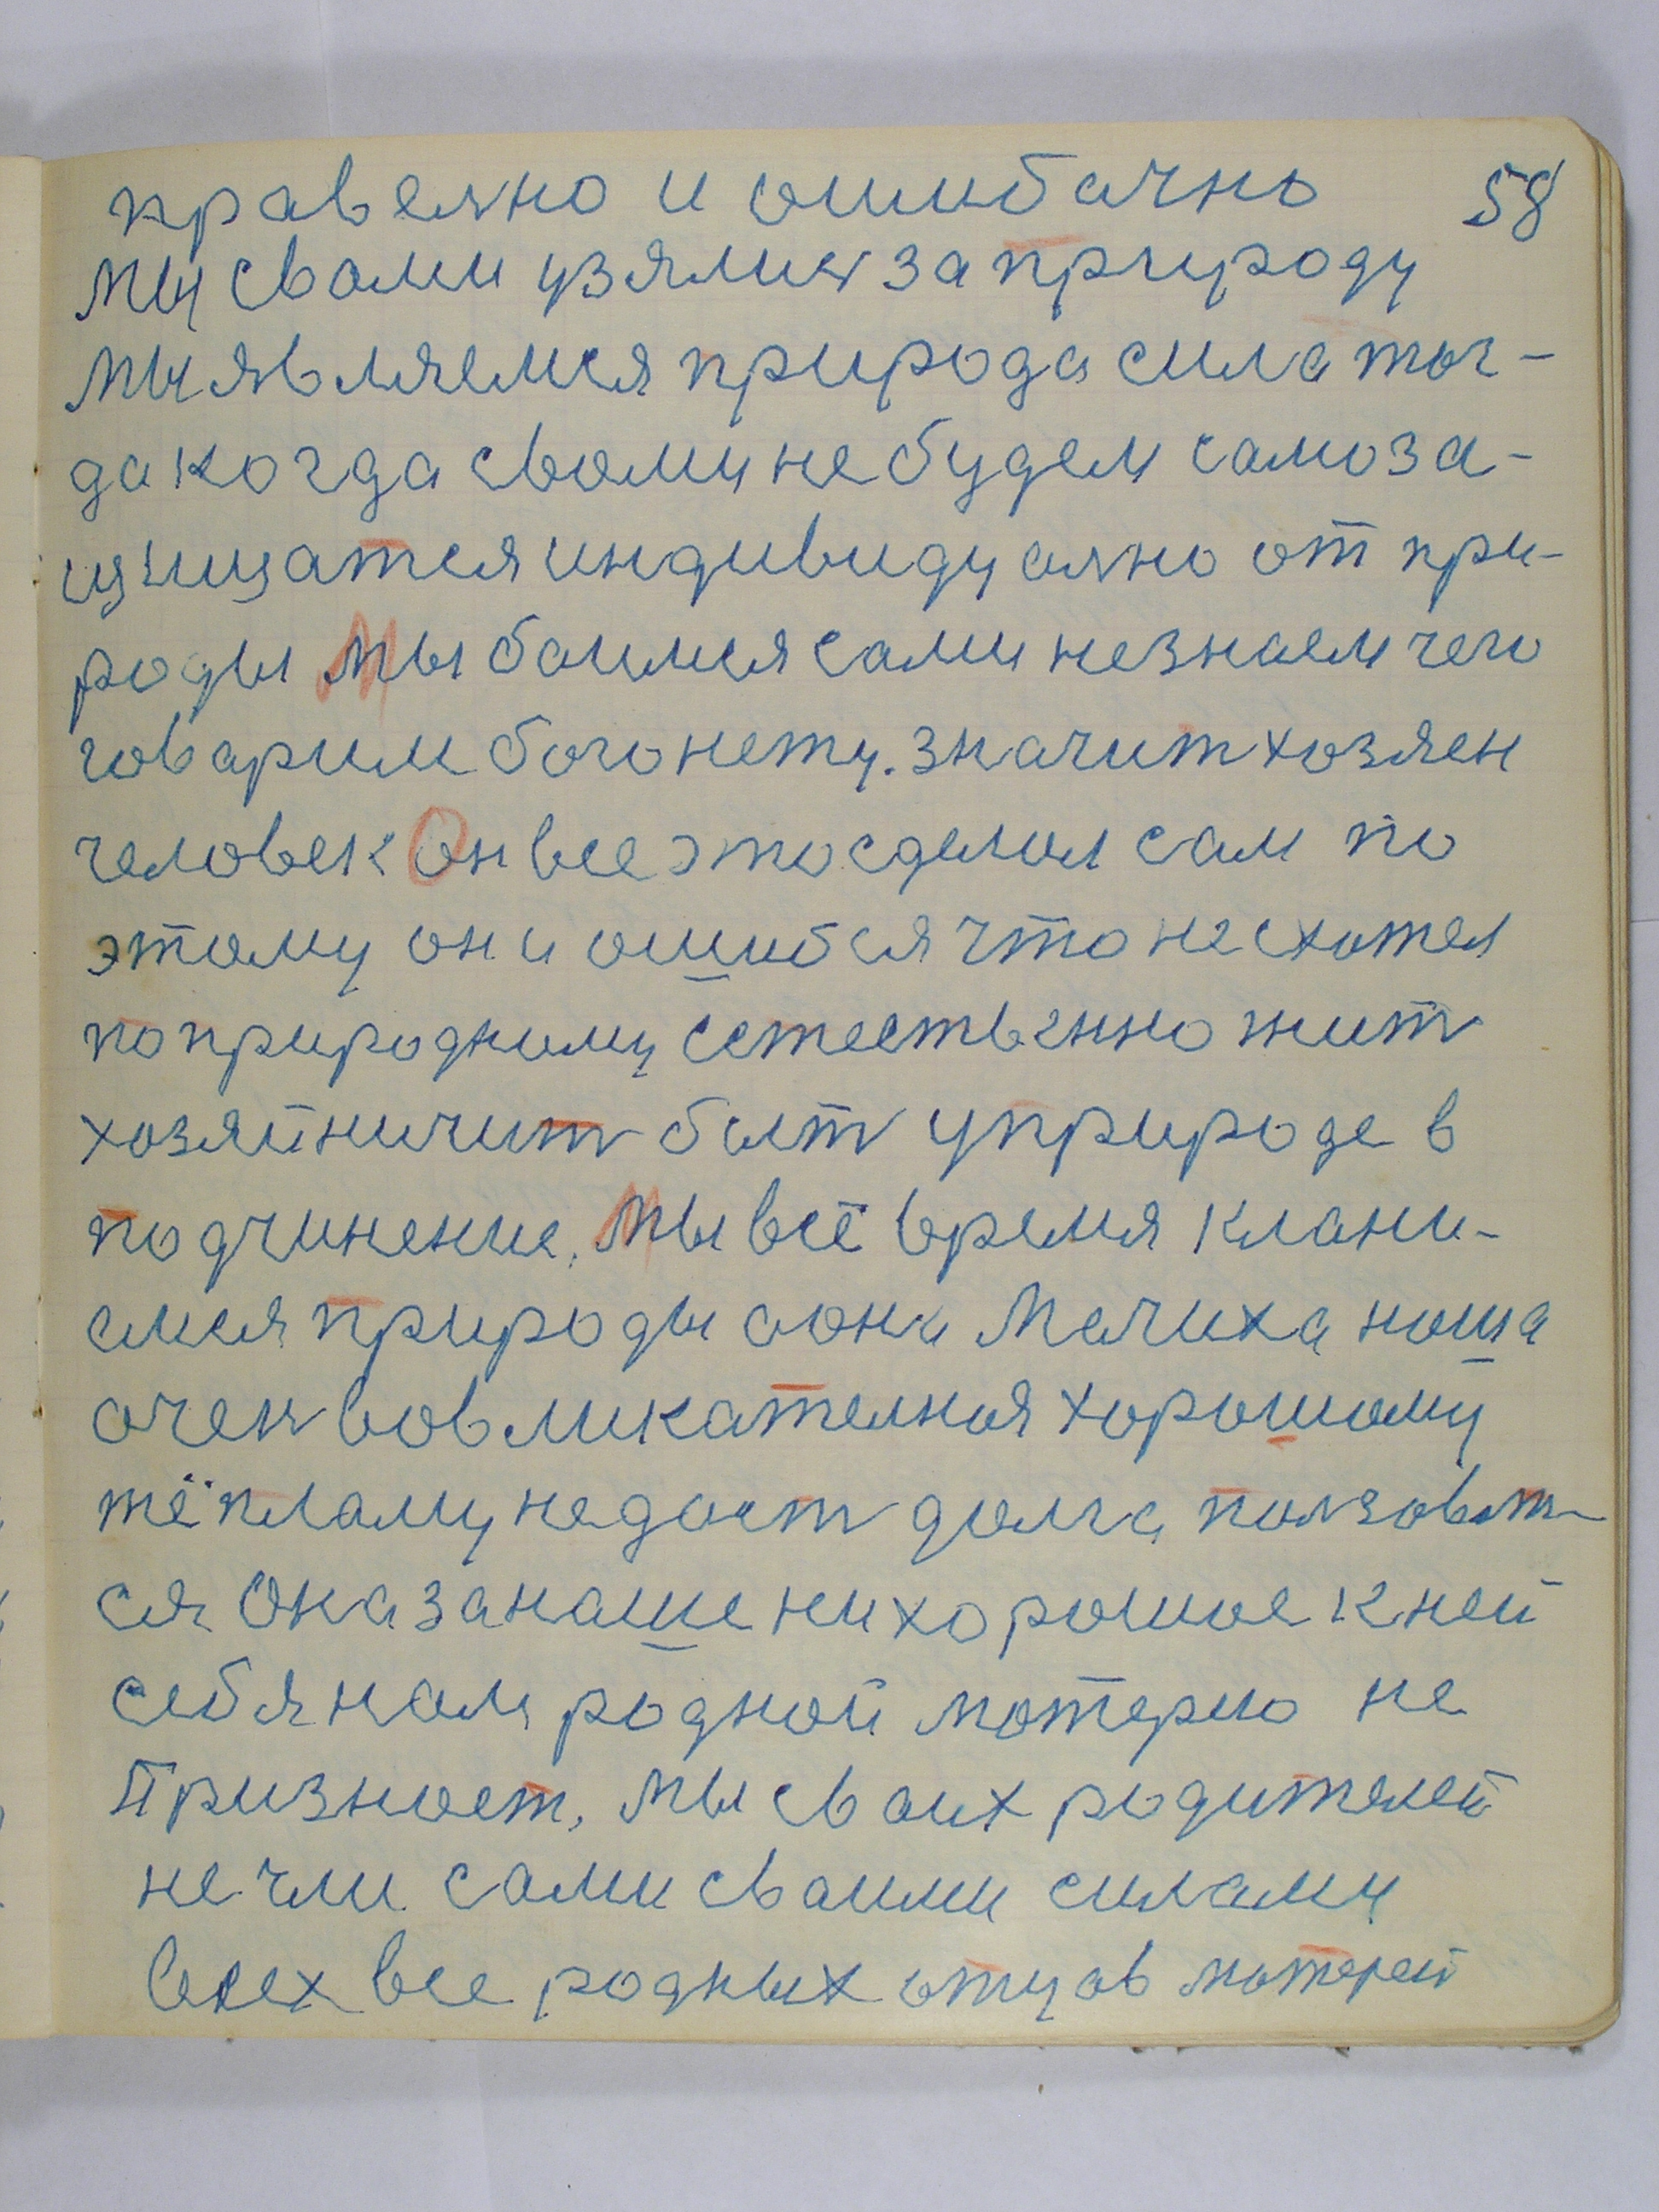 правелно и ошибачно 58
мы свами узялис за природу
мы являемся природа сила тог-
да когда свами небудем самоза-
щищатся индивидуално от при-
роды Мы боимся сами незнаем чего
говарим бога нету. значит хозяен
человек Он все это сделал сам по
этому он и ошибся что не схотел
по природному естественно жит
хозяйничит быт уприроде в
подчинение. Мы всё время клани-
емся природы аона Мачиха наша
очен вовликателная хорошому
тёпламу не дает долга ползоват-
ся Она за наше нихорошое к ней
себя нам родной матерю не
Признает, мы сваих родителей
не чли сами сваими силами
всех все родных отцов матерей